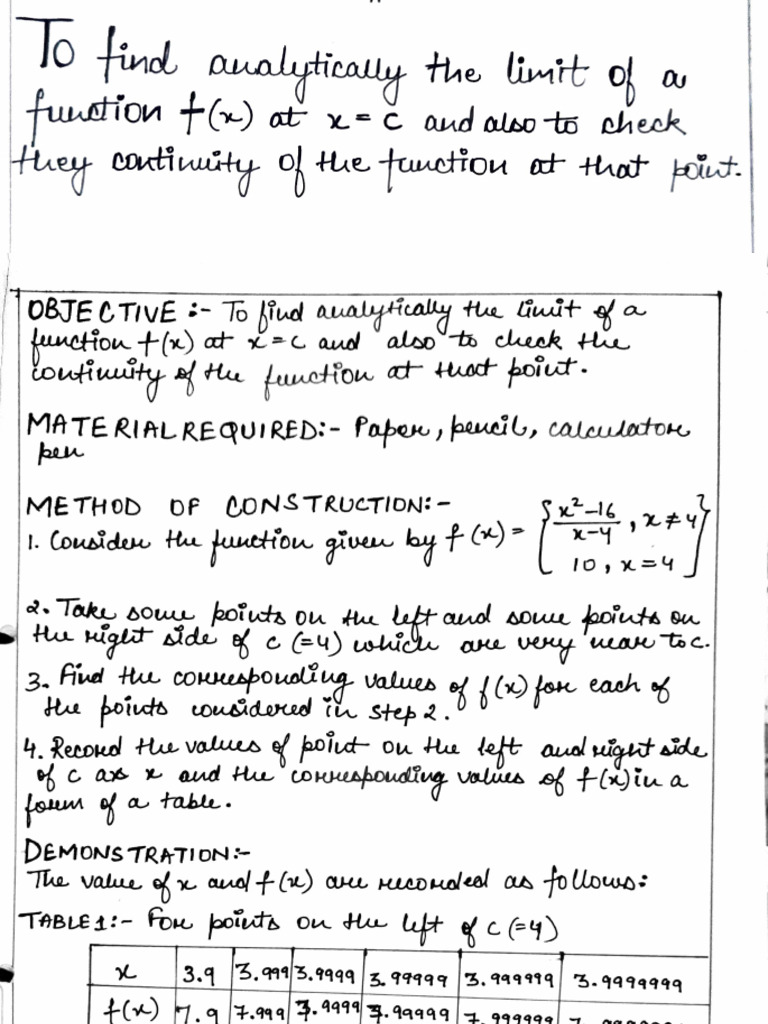 To find analytically the limit of a
function f(x) at x = c and also to check
they continuity of the function at that point.
OBJECTIVE :- To find analytically the limit of a
function f(x) at x = c and also to check the
continuity of the function at that point.
MATERIAL REQUIRED:- Paper, pencil, calculator
pen
METHOD OF CONSTRUCTION:-
1. Consider the function given by f(x) = { x²-16 / x-4 , x ≠ 4
10 , x = 4 }
2. Take some points on the left and some points on
the right side of c (=4) which are very near to c.
3. Find the corresponding values of f(x) for each of
the points considered in step 2.
4. Record the values of point on the left and right side
of c as x and the corresponding values of f(x) in a
form of a table.
DEMONSTRATION:-
The value of x and f(x) are recorded as follows:
TABLE 1:- For points on the left of c (=4)
x 3.9 3.999 3.9999 3.99999 3.999999 3.9999999
f(x) 7.9 7.999 7.9999 7.99999 7.999999